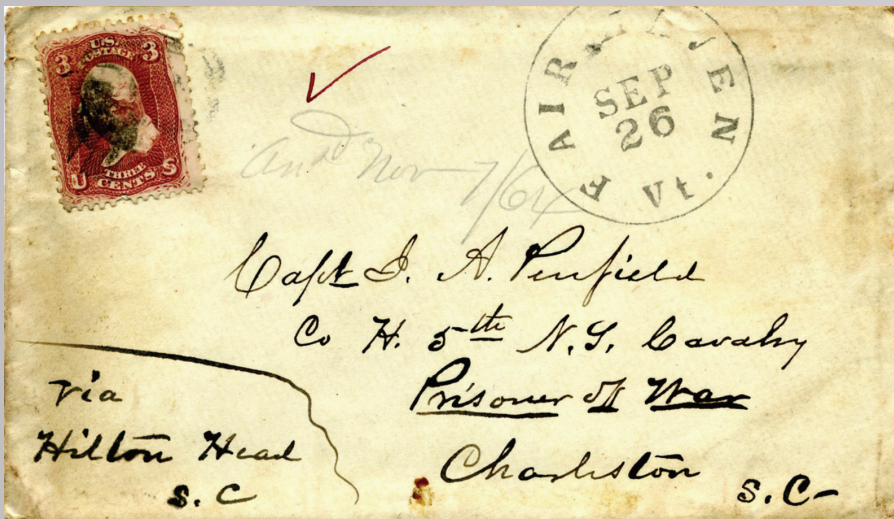 U.S.
POSTAGE
3 3
THREE
CENTS
U S
FAIR HAVEN
SEP
26
Vt.
Ansd Nov 7/64
Capt J. A. Penfield
Co H. 5th N.Y. Cavalry
Prisoner of War
Charleston
S.C-
via
Hilton Head
S.C